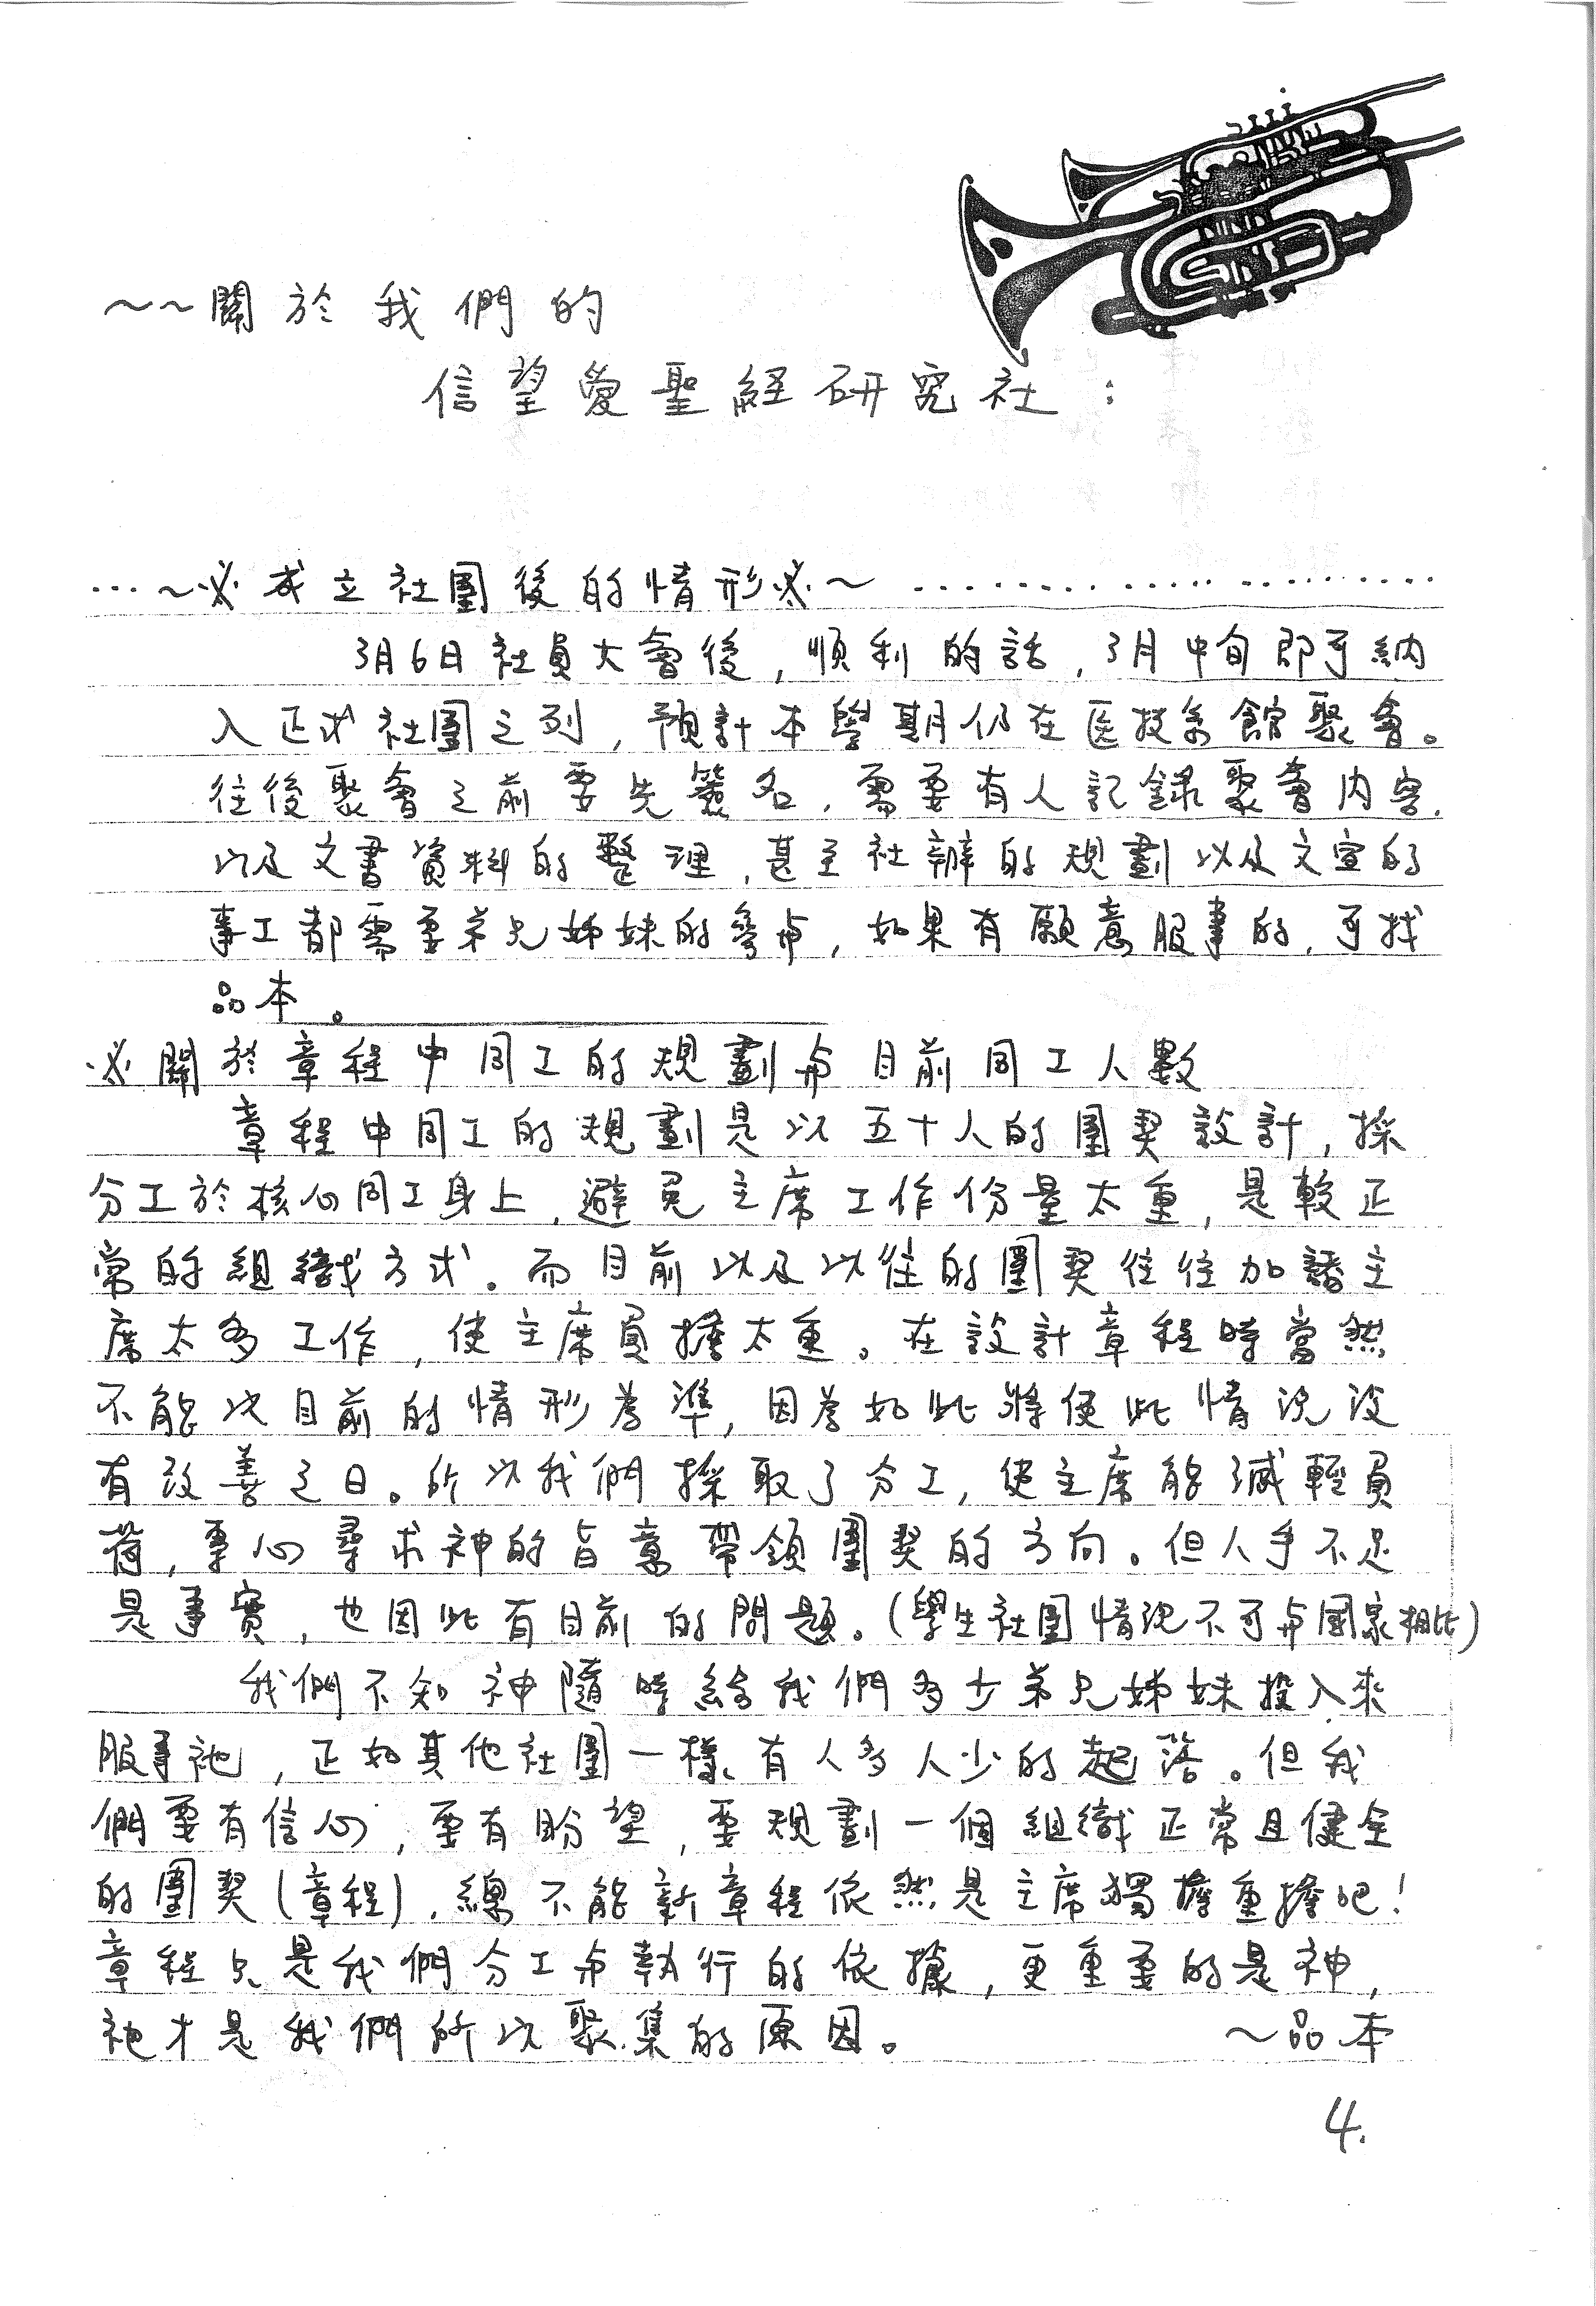 ～～關於我們的
信望愛聖経研究社：
…～※成立社團後的情形※～………………
3月6日社員大會後，順利的話，3月中旬即可納
入正式社團之列，預計本學期仍在医技系館聚會。
往後聚會之前要先簽名，需要有人記錄聚會內容，
以及文書資料的整理，甚至社辦的規劃以及文宣的
事工都需要弟兄姊妹的參与，如果有願意服事的，可找
品本。
※關於章程中同工的規劃与目前同工人數
章程中同工的規劃是以五十人的團契設計，採
分工於核心同工身上，避免主席工作份量太重，是較正
常的組織方式。而目前以及以往的團契往往加諸主
席太多工作，使主席負擔太重。在設計章程時當然
不能以目前的情形為準，因為如此將使此情況沒
有改善之日。所以我們採取了分工，使主席能減輕負
荷，專心尋求神的旨意帶領團契的方向。但人手不足
是事實，也因此有目前的問題。(學生社團情況不可与國家相比)
我們不知神隨時給我們多少弟兄姊妹投入來
服事祂，正如其他社團一樣、有人多人少的起落。但我
們要有信心，要有盼望，要規劃一個組織正常且健全
的團契(章程)，總不能新章程依然是主席獨擔重擔吧！
章程只是我們分工与執行的依據，更重要的是神，
祂才是我們所以聚集的原因。 ～品本
4.